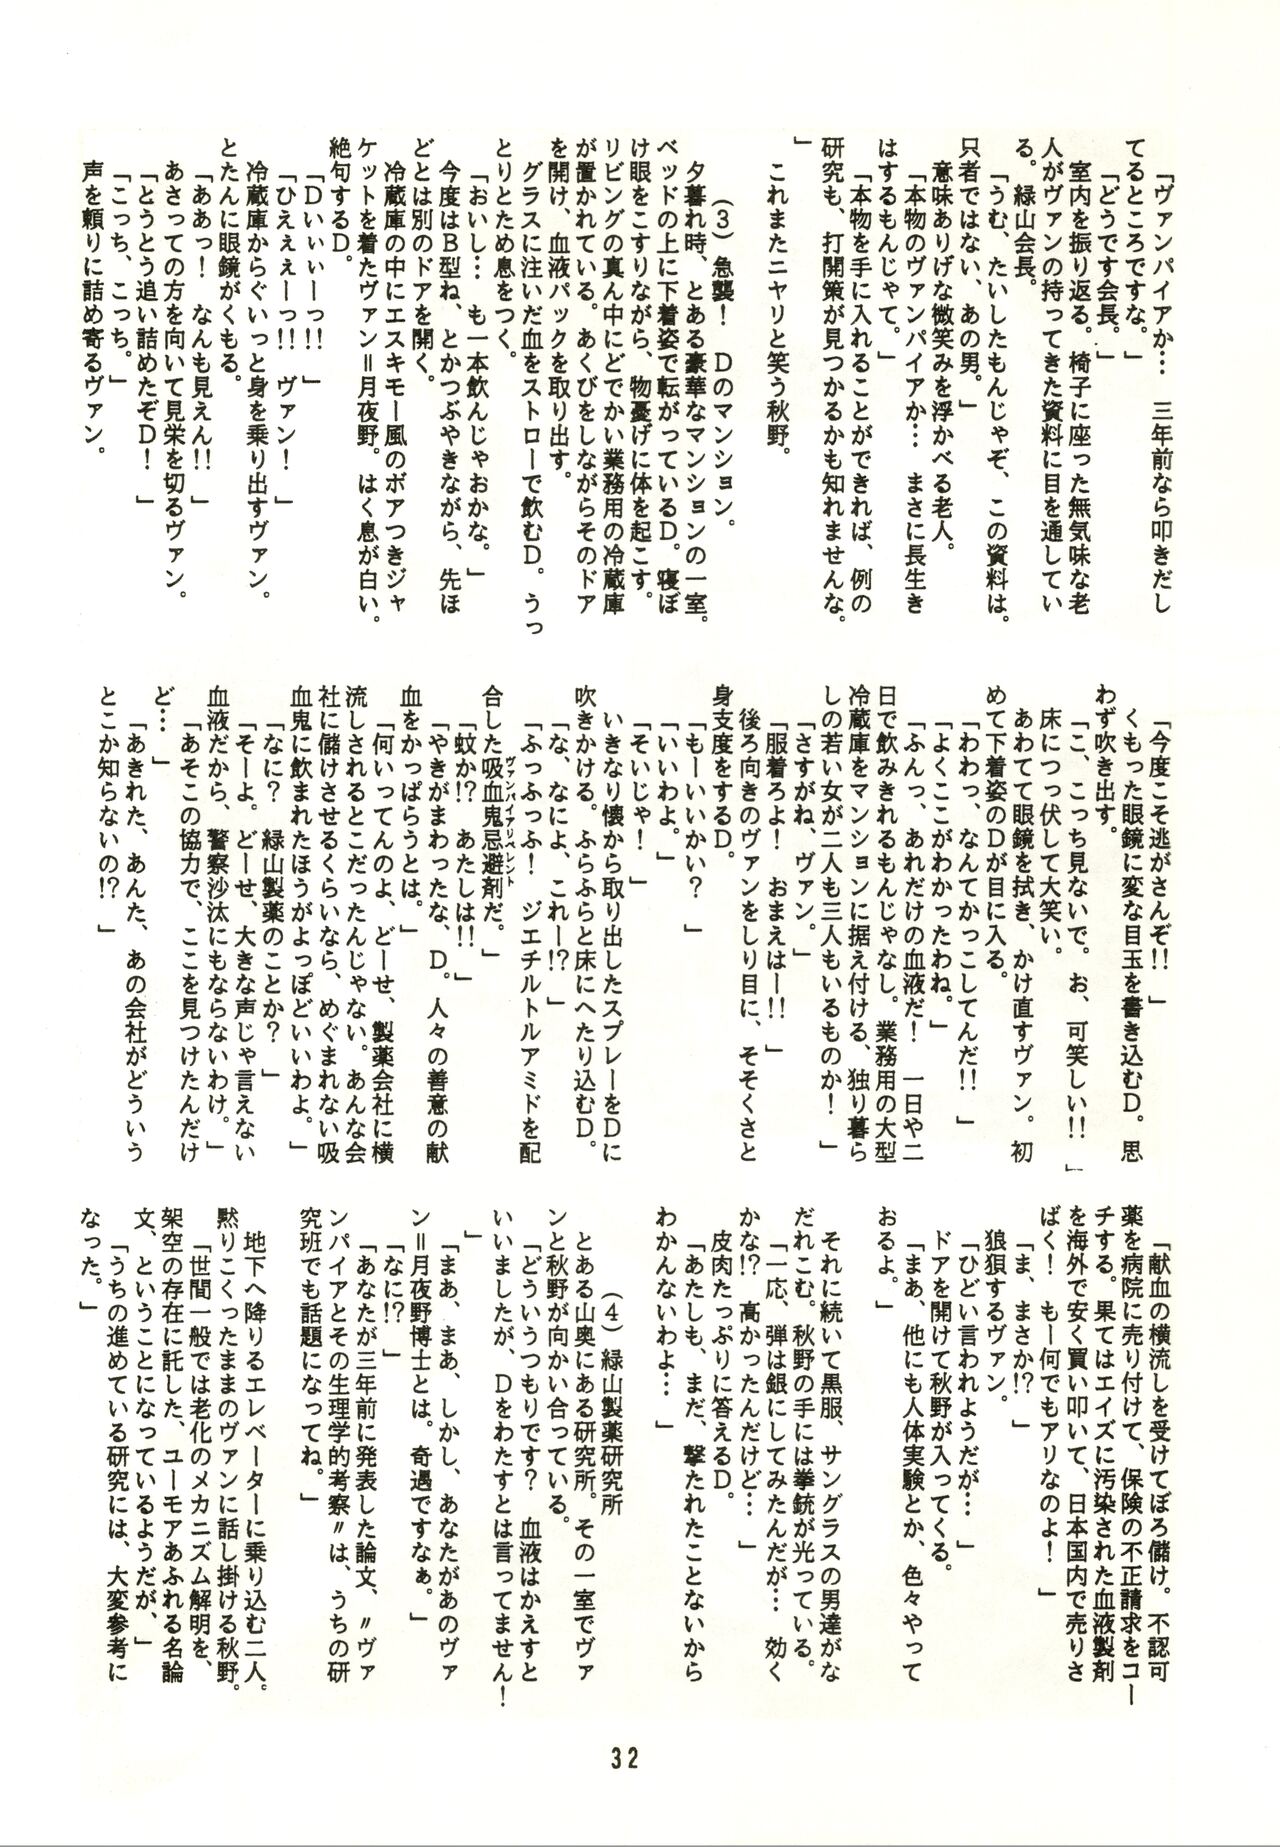 「ヴァンパイアか… 三年前なら叩きだし
てるところですな。」
「どうです会長。」
室内を振り返る。椅子に座った無気味な老
人がヴァンの持ってきた資料に目を通してい
る。緑山会長。
「うむ、たいしたもんじゃぞ、この資料は。
只者ではない、あの男。」
意味ありげな微笑みを浮かべる老人。
「本物のヴァンパイアか… まさに長生き
はするもんじゃて。」
「本物を手に入れることができれば、例の
研究も、打開策が見つかるかも知れませんな。
」
これまたニヤリと笑う秋野。
(3)急襲! Dのマンション。
夕暮れ時、とある豪華なマンションの一室。
ベッドの上に下着姿で転がっているD。寝ぼ
け眼をこすりながら、物憂げに体を起こす。
リビングの真ん中にどでかい業務用の冷蔵庫
が置かれている。あくびをしながらそのドア
を開け、血液パックを取り出す。
グラスに注いだ血をストローで飲むD。うっ
とりとため息をつく。
「おいし… も一本飲んじゃおかな。」
今度はB型ね、とかつぶやきながら、先ほ
どとは別のドアを開く。
冷蔵庫の中にエスキモー風のボアつきジャ
ケットを着たヴァン=月夜野。はく息が白い。
絶句するD。
「Dいぃぃーっ!! 」
「ひえぇぇーっ!! ヴァン! 」
冷蔵庫からぐいっと身を乗り出すヴァン。
とたんに眼鏡がくもる。
「ああっ! なんも見えん!! 」
あさっての方を向いて見栄を切るヴァン。
「とうとう追い詰めたぞD! 」
「こっち、こっち。」
声を頼りに詰め寄るヴァン。
「今度こそ逃がさんぞ!! 」
くもった眼鏡に変な目玉を書き込むD。思
わず吹き出す。
「こ、こっち見ないで。お、可笑しい!! 」
床につっ伏して大笑い。
あわてて眼鏡を拭き、かけ直すヴァン。初
めて下着姿のDが目に入る。
「わわっ、なんてかっこしてんだ!! 」
「よくここがわかったわね。」
「ふんっ、あれだけの血液だ! 一日や二
日で飲みきれるもんじゃなし。業務用の大型
冷蔵庫をマンションに据え付ける、独り暮ら
しの若い女が二人も三人もいるものか! 」
「さすがね、ヴァン。」
「服着ろよ! おまえはー!! 」
後ろ向きのヴァンをしり目に、そそくさと
身支度をするD。
「もーいいかい? 」
「いいわよ。」
「そいじゃ! 」
いきなり懐から取り出したスプレーをDに
吹きかける。ふらふらと床にへたり込むD。
「な、なによ、これー!? 」
「ふっふっふ! ジエチルトルアミドを配
ヴァンパイアリペレント
合した吸血鬼忌避剤だ。」
「蚊か!? あたしは!! 」
「やきがまわったな、D。人々の善意の献
血をかっぱらうとは。」
「何いってんのよ、どーせ、製薬会社に横
流しされるとこだったんじゃない。あんな会
社に儲けさせるくらいなら、めぐまれない吸
血鬼に飲まれたほうがよっぽどいいわよ。」
「なに? 緑山製薬のことか? 」
「そーよ。どーせ、大きな声じゃ言えない
血液だから、警察沙汰にもならないわけ。」
「あそこの協力で、ここを見つけたんだけ
ど… 」
「あきれた、あんた、あの会社がどういう
とこか知らないの!? 」
「献血の横流しを受けてぼろ儲け。不認可
薬を病院に売り付けて、保険の不正請求をコー
チする。果てはエイズに汚染された血液製剤
を海外で安く買い叩いて、日本国内で売りさ
ばく! もー何でもアリなのよ! 」
「ま、まさか!? 」
狼狽するヴァン。
「ひどい言われようだが… 」
ドアを開けて秋野が入ってくる。
「まあ、他にも人体実験とか、色々やって
おるよ。」
それに続いて黒服、サングラスの男達がな
だれこむ。秋野の手には拳銃が光っている。
「一応、弾は銀にしてみたんだが… 効く
かな!? 高かったんだけど… 」
皮肉たっぷりに答えるD。
「あたしも、まだ、撃たれたことないから
わかんないわよ… 」
(4)緑山製薬研究所
とある山奥にある研究所。その一室でヴァ
ンと秋野が向かい合っている。
「どういうつもりです? 血液はかえすと
いいましたが、Dをわたすとは言ってません!
」
「まあ、まあ、しかし、あなたがあのヴァ
ン=月夜野博士とは。奇遇ですなぁ。」
「なに!? 」
「あなたが三年前に発表した論文、〃ヴァ
ンパイアとその生理学的考察〃は、うちの研
究班でも話題になってね。」
地下へ降りるエレベーターに乗り込む二人。
黙りこくったままのヴァンに話し掛ける秋野。
「世間一般では老化のメカニズム解明を、
架空の存在に託した、ユーモアあふれる名論
文、ということになっているようだが、」
「うちの進めている研究には、大変参考に
なった。」
32